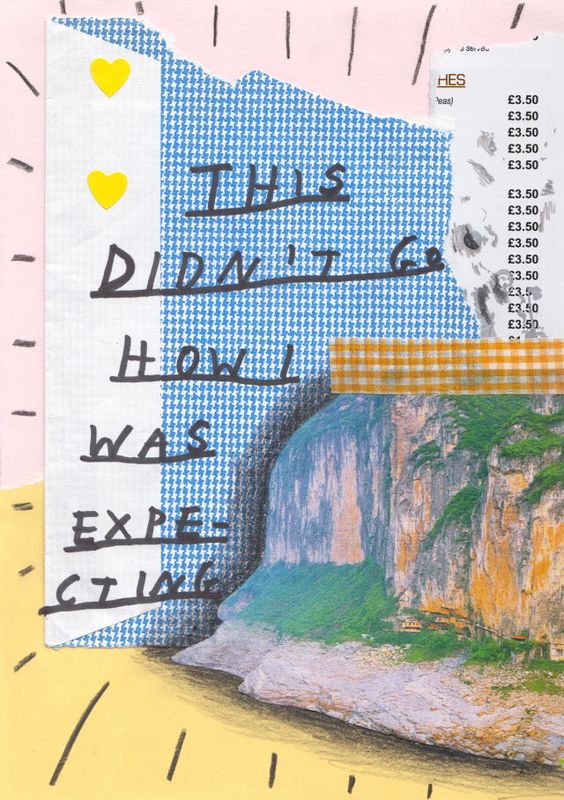 THIS
DIDN'T GO
HOW I
WAS
EXPE-
CTING
HES
Peas)
£3.50
£3.50
£3.50
£3.50
£3.50
£3.50
£3.50
£3.50
£3.50
£3.50
£3.50
£3.5
£3.50
£3.50